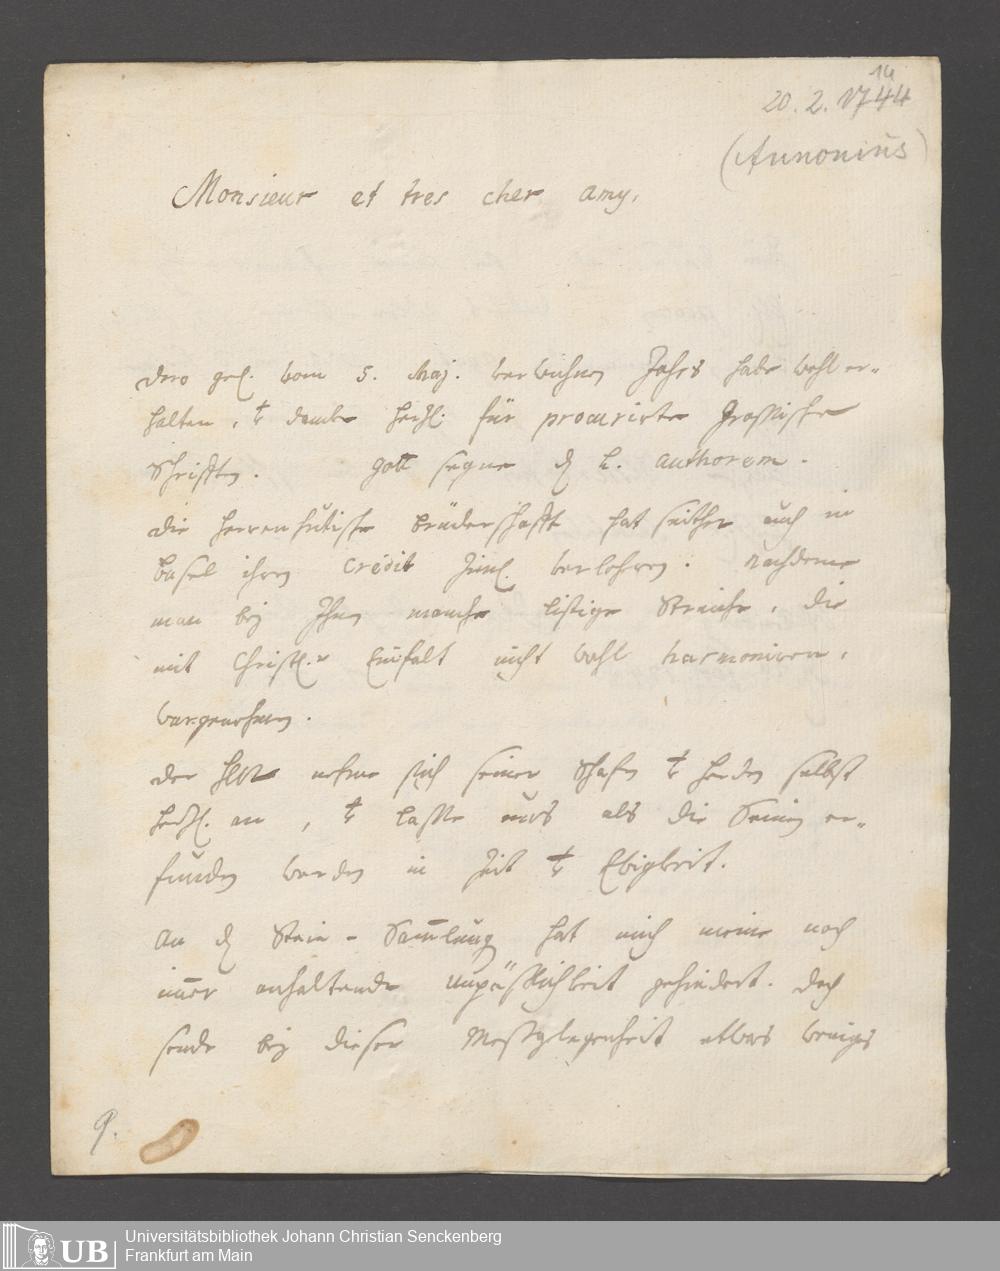 14
20. 2. 1744
(Annonius)
Monsieur et tres cher amy,
dero gel. vom 5. Maj. verwichnen Jahrs habe wohl er-
halten, & dancke hertzl. für procurirte Grossische
Schrifften. Gott segne den l. authorem.
die Herrenhutische Brüderschafft hat seither auch in
Basel ihren Credit ziml. verlohren. Nachdeme
man bey Ihnen manche listige Streiche, die
mit Christl.r Einfalt nicht wohl harmoniren,
wargenohmen.
der HERR nehme sich seiner Schafen & Herden selbst
hertzl. an, & lasse uns als die Seinen er-
funden werden in Zeit & Ewigkeit.
An der Stein-Sammlung hat mich meine noch
immer anhaltende Unpässlichkeit gehindert. Doch
sende bey dieser Messgelegenheit etwas weniges
9.
UB
Universitätsbibliothek Johann Christian Senckenberg
Frankfurt am Main